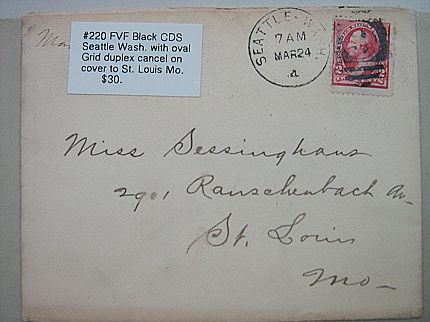 #220 FVF Black CDS
Seattle Wash. with oval
Grid duplex cancel on
cover to St. Louis Mo.
$30.
SEATTLE
7 AM
MAR 24
4
Miss Sessinghaus
2901 Rauschenbach Av
St. Louis
Mo